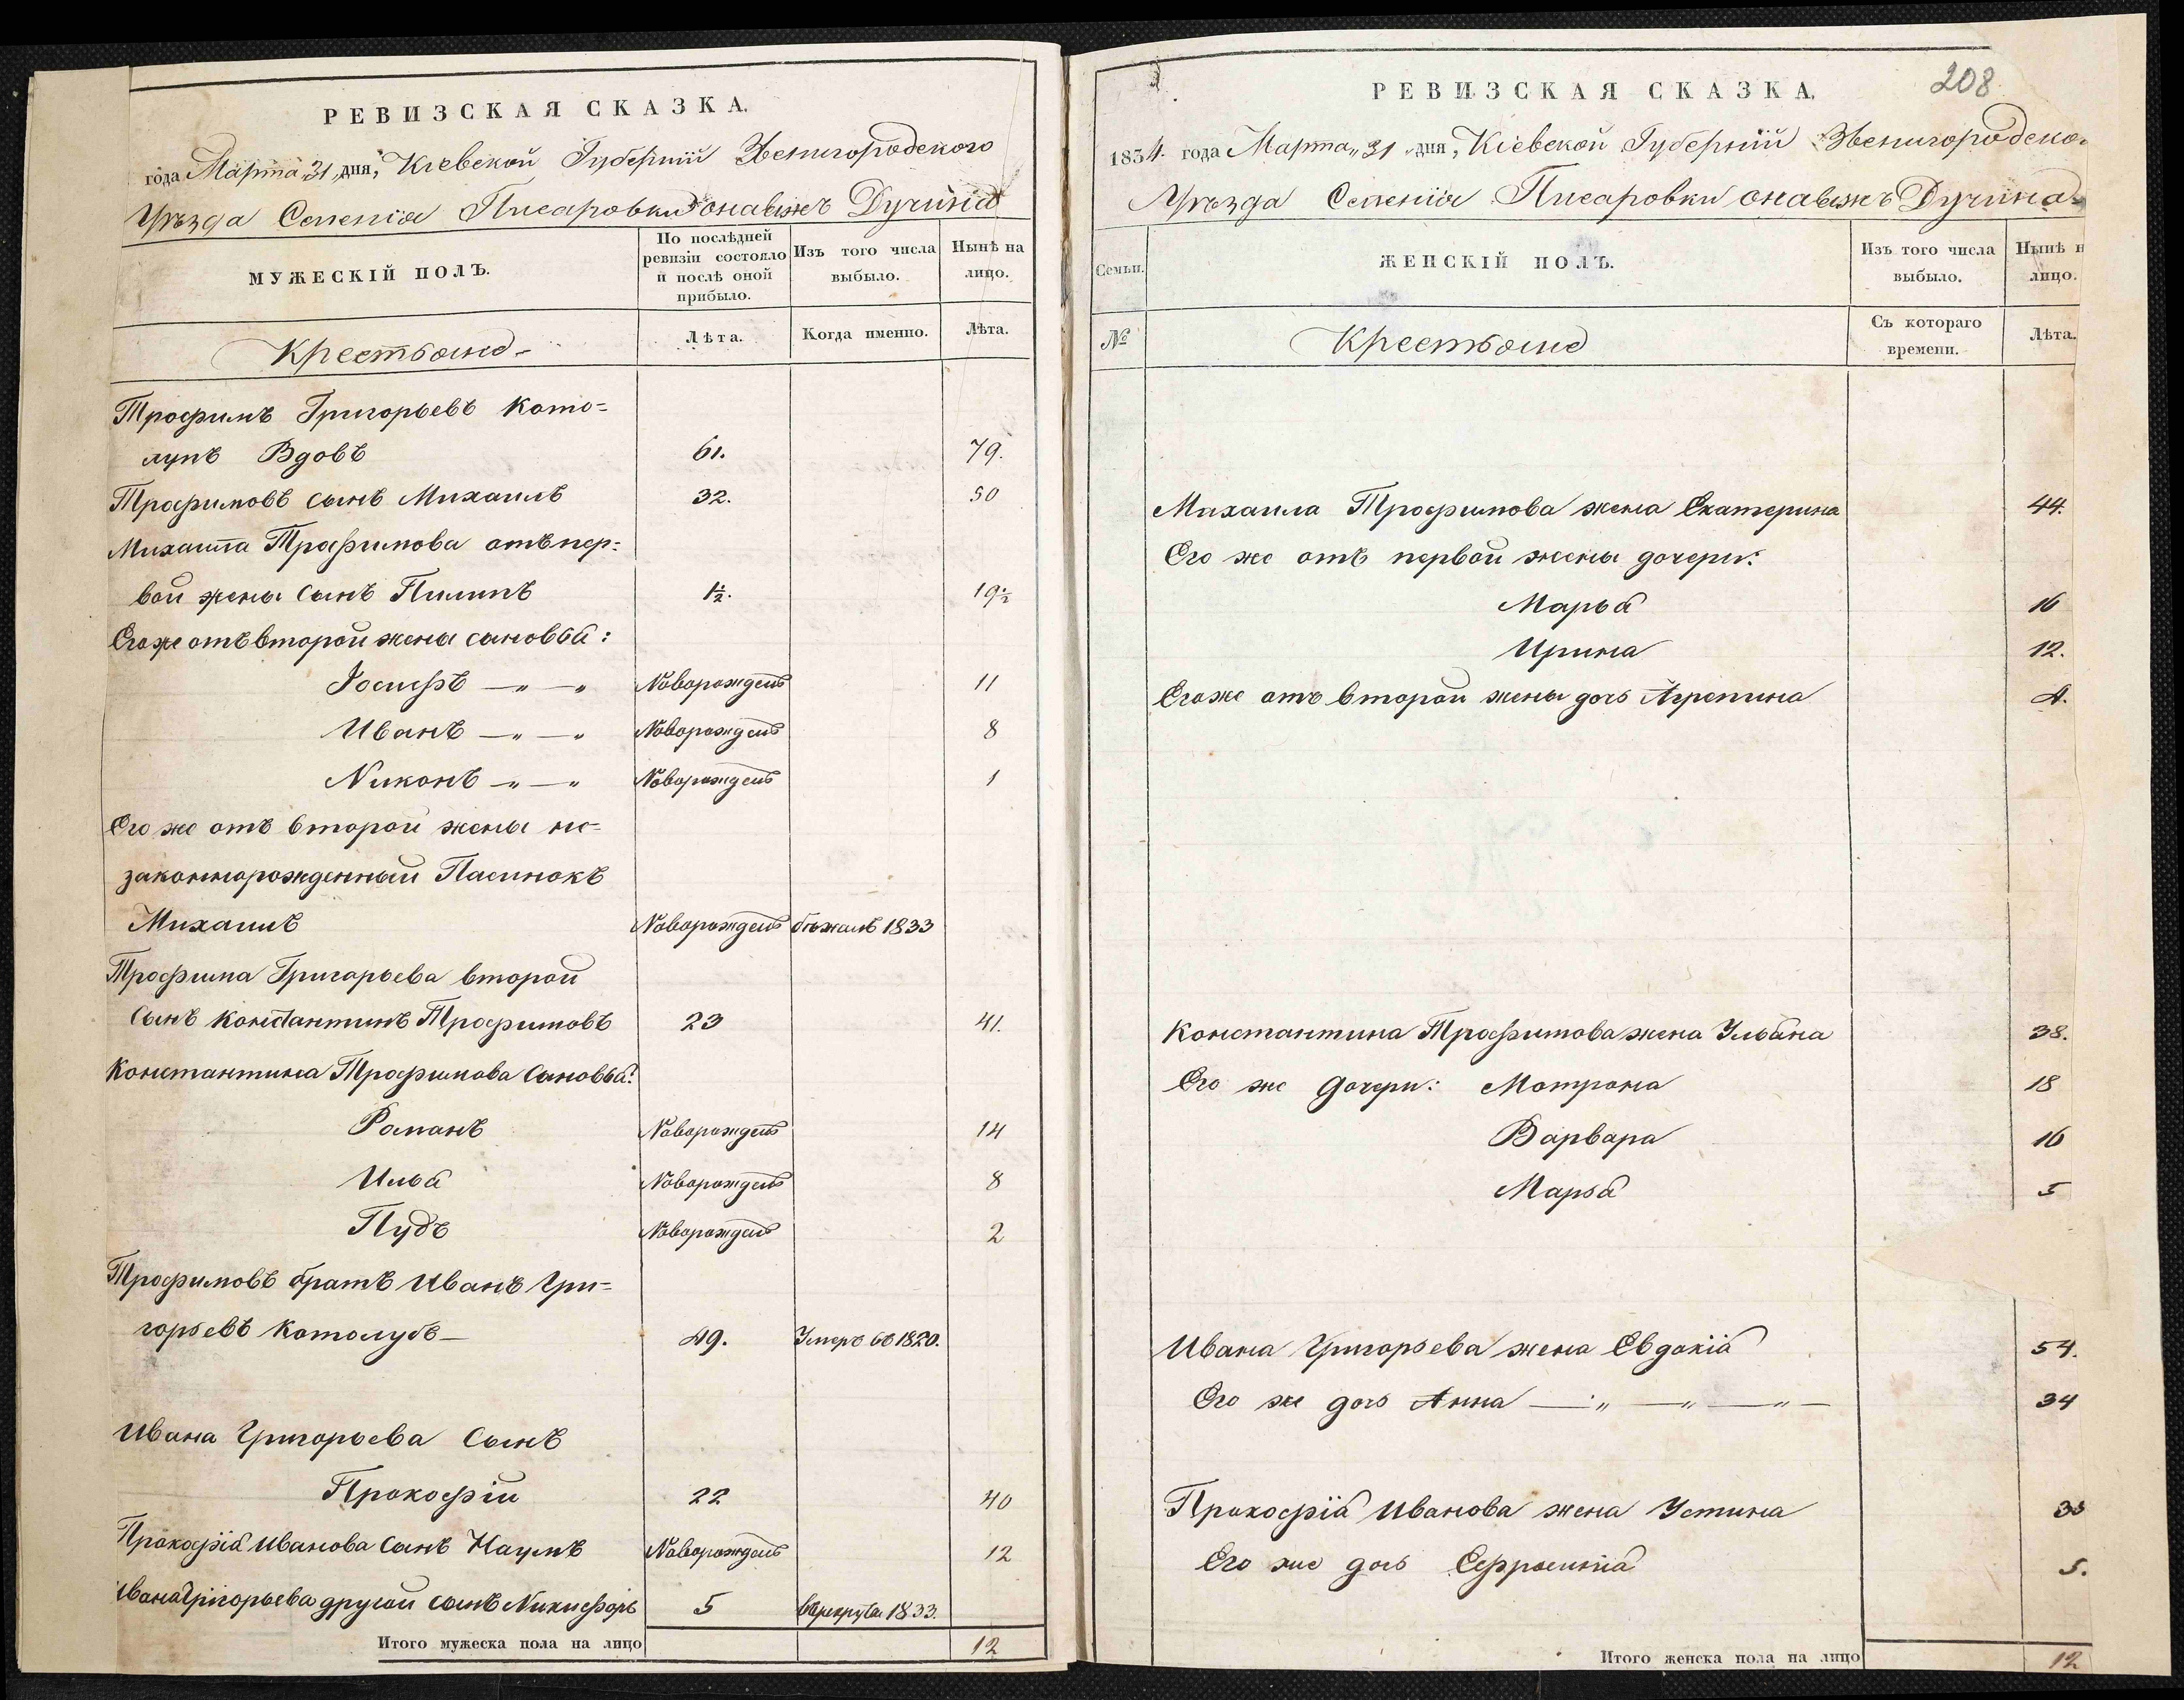 РЕВИЗСКАЯ СКАЗКА.
года Марта 31 дня, Кіевской Губерніи Звенигородского
Уѣзда Селенія Писаровки онажъ Дучина
МУЖЕСКІЙ ПОЛЪ.
По послѣдней ревизіи состояло и послѣ оной прибыло.
Изъ того числа выбыло.
Нынѣ на лицо.
Крестьяне
Лѣта.
Когда именно.
Лѣта.
Трофимъ Григорьевъ Като=
лупъ Вдовъ 61. 79.
Трофимовъ сынъ Михаилъ 32. 50
Михаила Трофимова отъ пер=
вой жены сынъ Пилипъ 1½. 19½
Его же отъ второй жены сыновья:
Іосифъ —„—„ Новорожден 11
Иванъ —„—„ Новорожден 8
Никонъ —„—„ Новорожден 1
Его же отъ второй жены не=
законнорожденный Пасинокъ
Михаилъ Новорожден бѣжалъ 1833
Трофима Григорьева второй
сынъ Константинъ Трофимовъ 23 41.
Константина Трофимова сыновья:
Романъ Новорожден 14
Илья Новорожден 8
Пудъ Новорожден 2
Трофимовъ братъ Иванъ Гри=
горьевъ Католубъ— 49. Умеръ въ 1820.
Ивана Григорьева сынъ
Прокофій 22 40
Прокофія Иванова сынъ Наумъ Новорожден 12
Ивана Григорьева другой сынъ Никифоръ 5 в рекруты 1833.
Итого мужеска пола на лицо 12
208
РЕВИЗСКАЯ СКАЗКА.
1834. года Марта„31 дня, Кіевской Губерніи Звенигородско
Уѣзда Селенія Писаровки онажъ Дучина
Семьи.
ЖЕНСКІЙ ПОЛЪ.
Изъ того числа выбыло.
Нынѣ н лицо.
№
Крестьяне
Съ котораго времени.
Лѣта.
Михаила Трофимова жена Екатерина 44.
Его же отъ первой жены дочери:
Марья 16
Ирина 12.
Его же отъ второй жены дочь Агрепина 4.
Константина Трофимова жена Ульяна 38.
Его же дочери: Мотрона 18
Варвара 16
Марья 5
Ивана Григорьева жена Евдокія 54.
Его же дочь Анна —„—„—„— 34
Прокофія Иванова жена Устина
Его же дочь Ефросинія 5.
Итого женска пола на лицо 12